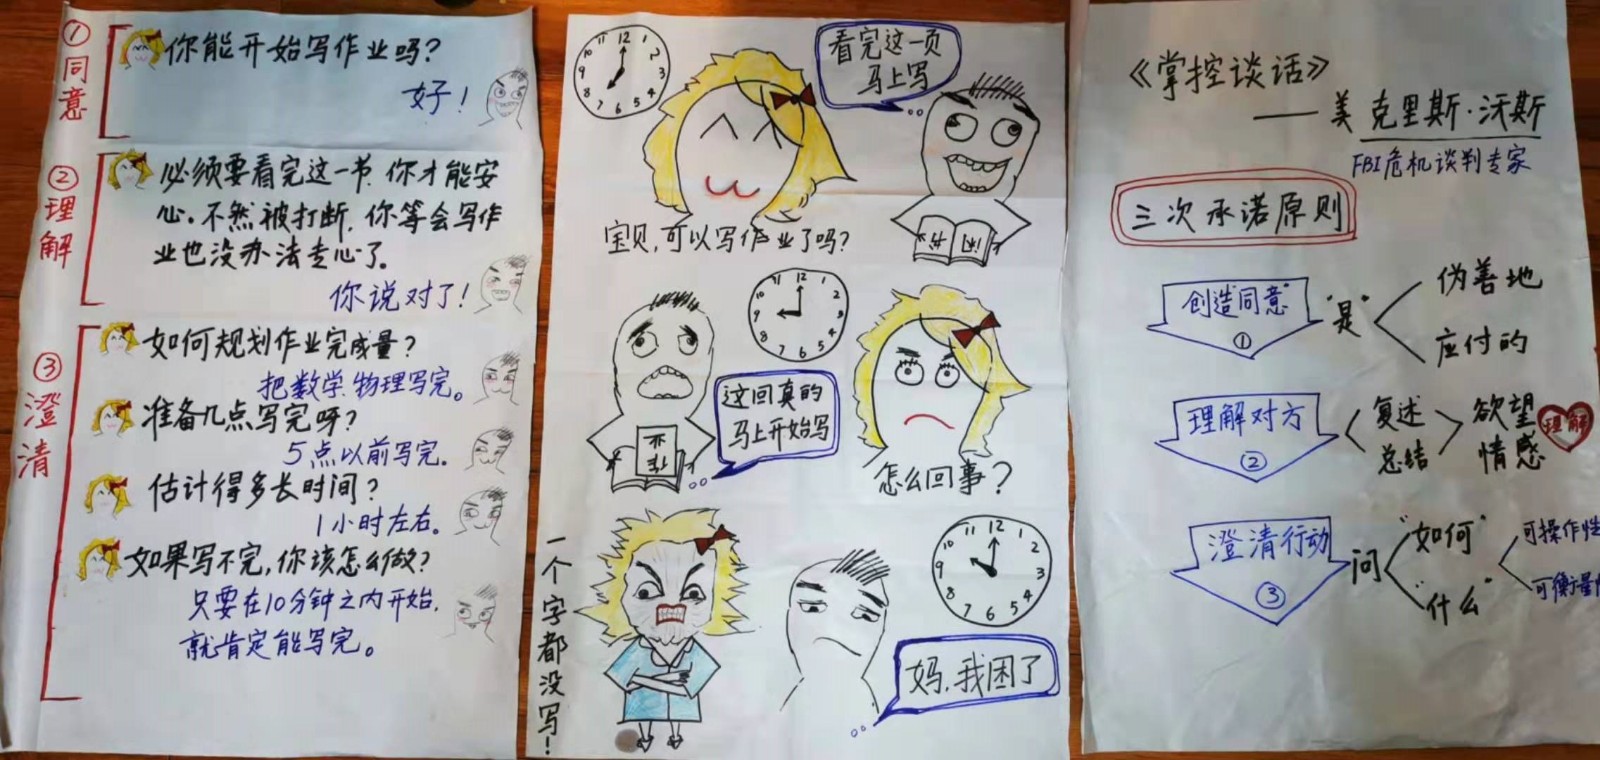 ①同意
你能开始写作业吗？
好！
②理解
必须要看完这一节，你才能安
心。不然被打断，你等会写作
业也没办法专心了。
你说对了！
③澄清
如何规划作业完成量？
把数学，物理写完。
准备几点写完呀？
5点以前写完。
估计得多长时间？
1小时左右。
如果写不完，你该怎么做？
只要在10分钟之内开始，
就肯定能写完。
12
1
2
3
4
5
6
7
8
9
10
11
看完这一页
马上写
宝贝，可以写作业了吗？
12
1
2
3
4
5
6
7
8
9
10
11
这回真的
马上开始写
怎么回事？
一个字都没写！
12
1
2
3
4
5
6
7
8
9
10
11
妈，我困了
《掌控谈话》
——美 克里斯·沃斯
FBI危机谈判专家
三次承诺原则
创造"同意"
①
"是"
伪善地
应付的
理解对方
②
复述
总结
欲望
情感
理解
澄清行动
③
问
"如何"
"什么"
可操作性
可衡量